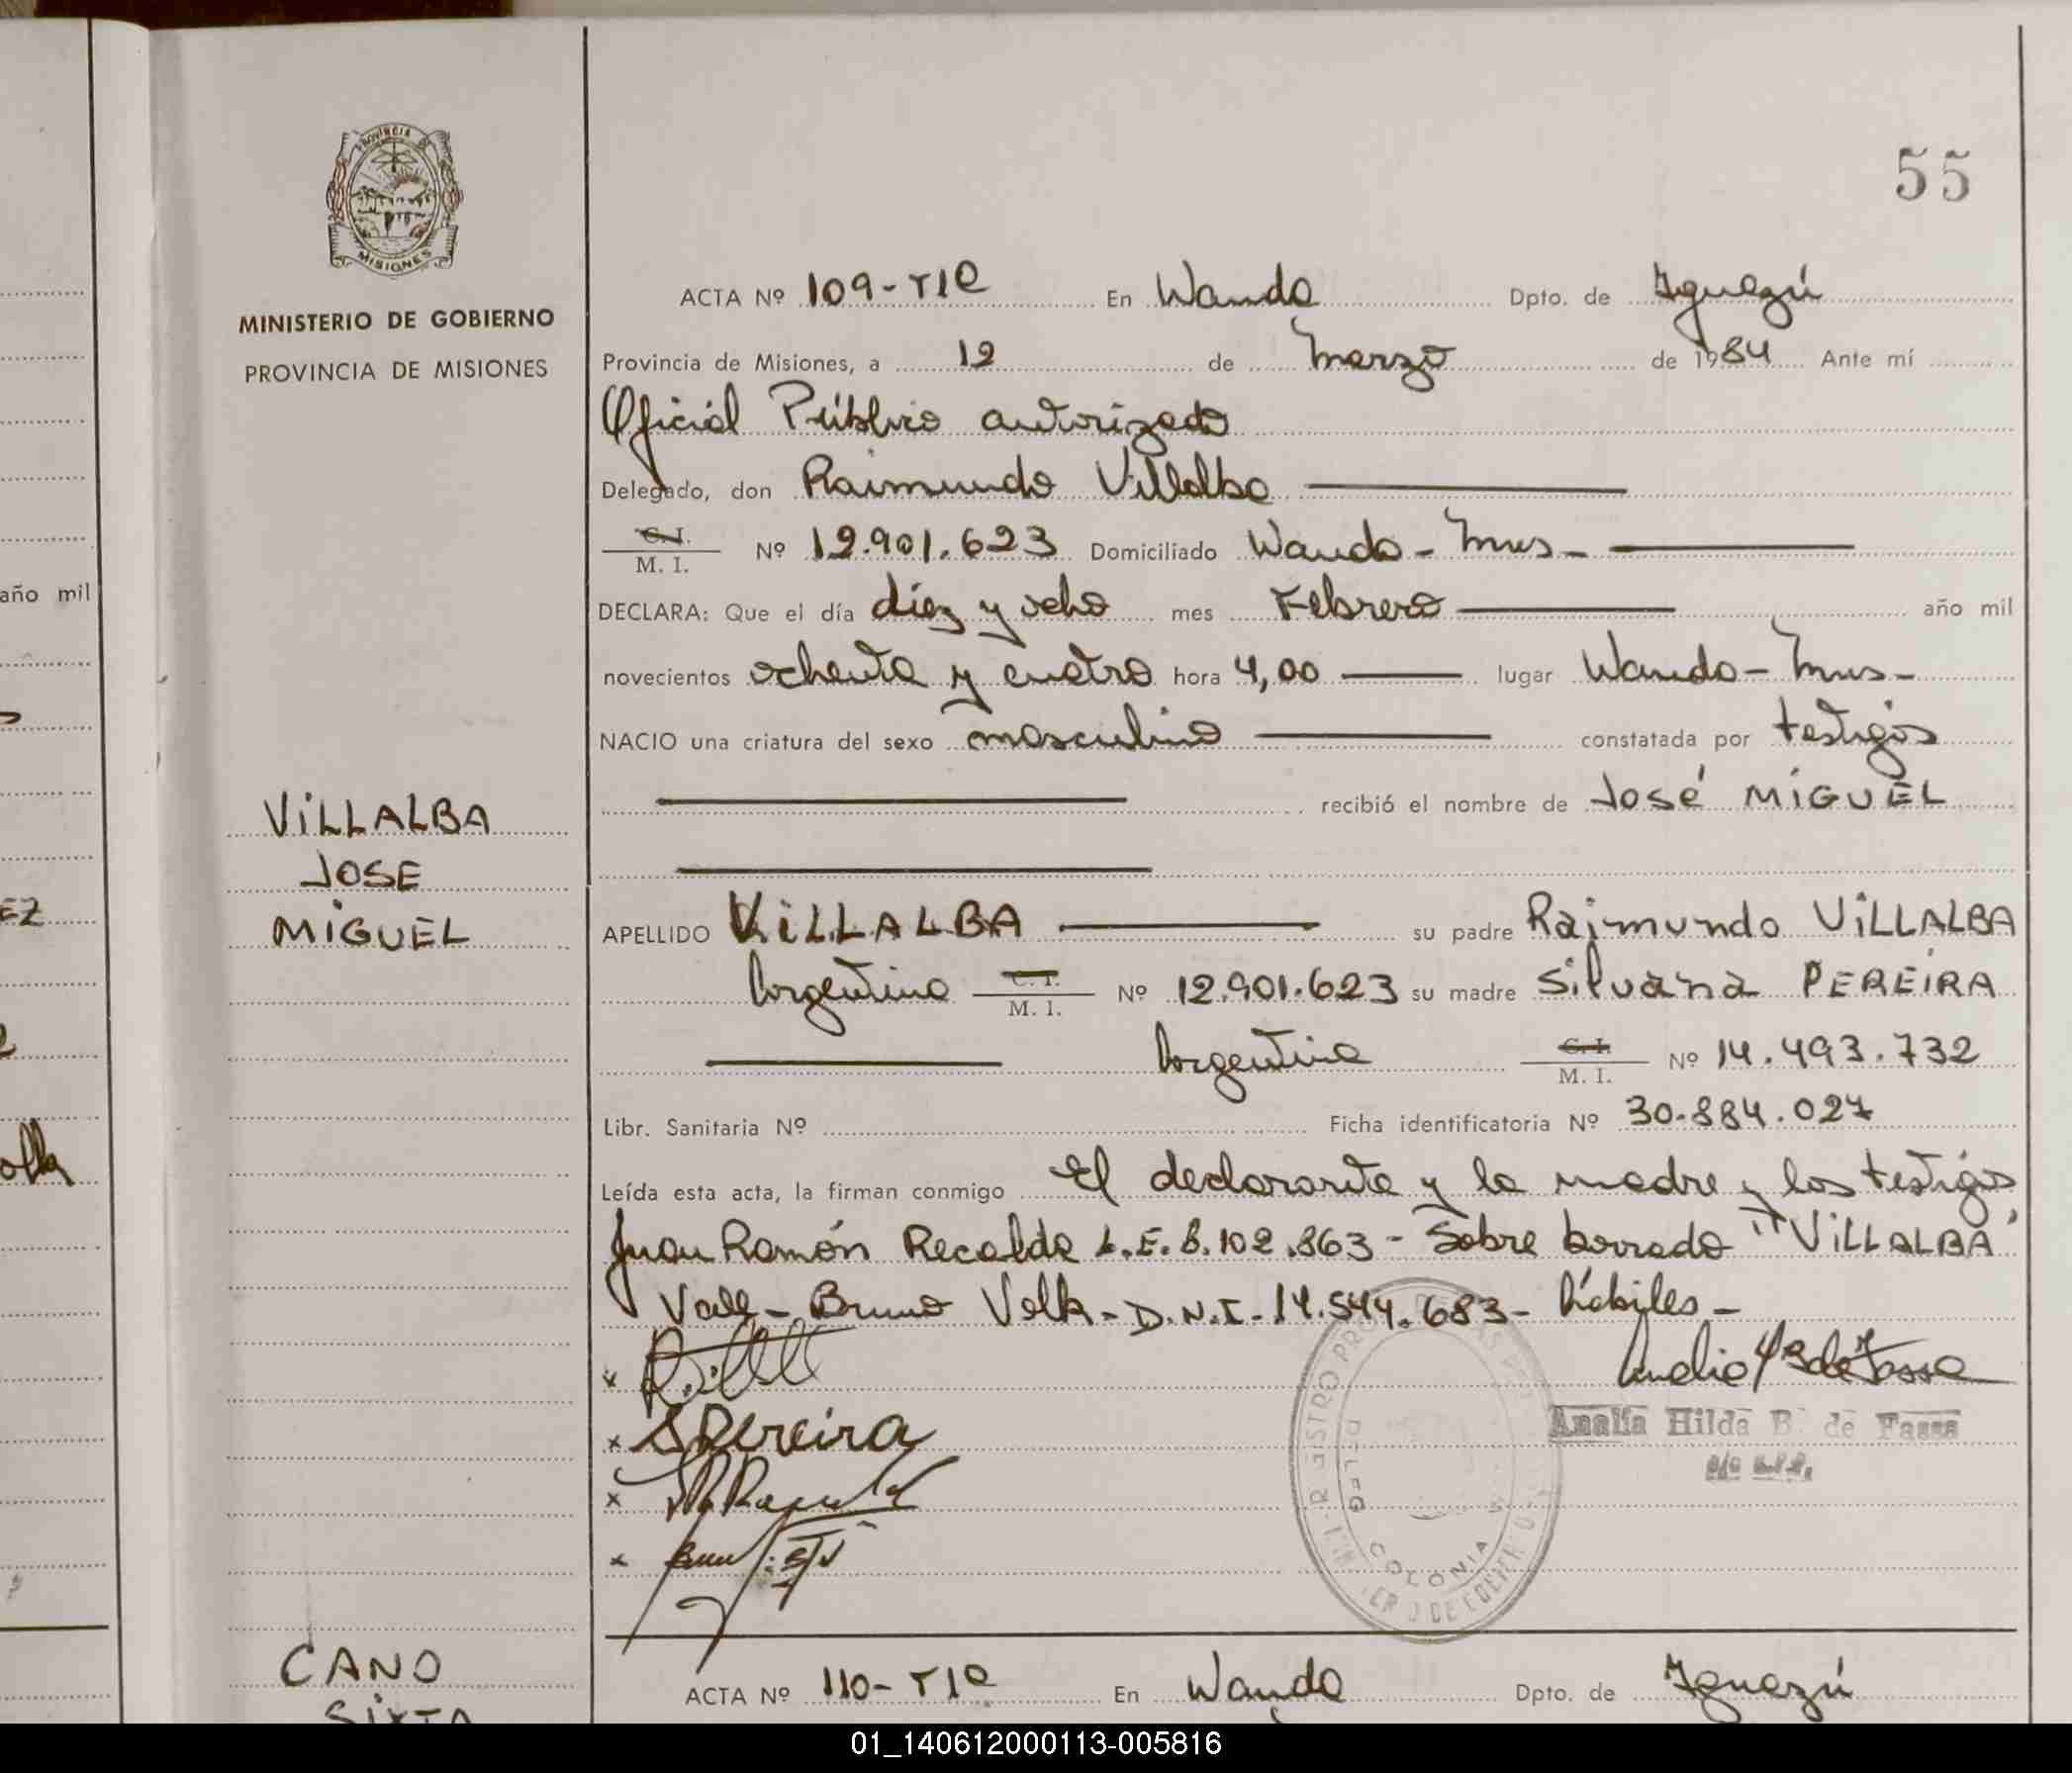 55
PROVINCIA DE
MISIONES
MINISTERIO DE GOBIERNO
PROVINCIA DE MISIONES
ACTA Nº 109-T1º En Wanda Dpto. de Iguazú
Provincia de Misiones, a 12 de Marzo de 1984 Ante mí
Oficial Público autorizado
Delegado, don Raimundo Villalba
C. I.
M. I. Nº 12.901.623 Domiciliado Wanda - Mns -
año mil
DECLARA: Que el día diez y ocho mes Febrero año mil
novecientos ochenta y cuatro hora 4,00 lugar Wanda - Mns -
NACIO una criatura del sexo masculino constatada por testigos
recibió el nombre de José MiGUEL
ViLLALBA
JOSE
MiGUEL
EZ
APELLIDO ViLLALBA su padre Raimundo ViLLALBA
Argentino C. I.
M. I. Nº 12.901.623 su madre Silvana PEREiRA
Argentina C. I.
M. I. Nº 14.493.732
Libr. Sanitaria Nº Ficha identificatoria Nº 30.884.027
Leída esta acta, la firman conmigo El declarante y la madre y los testigos
Juan Ramón Recalde L.E. 8.102.863 - Sobre borrado "ViLLALBA"
Vale - Bruno Velk - D.N.I. 14.544.683 - hábiles -
x
x SPereira
x
x
Analía Hilda B. de Fassa
COLONIA
CANO
SiXTA
ACTA Nº 110- T1º En Wanda Dpto. de Iguazú
01_140612000113-005816